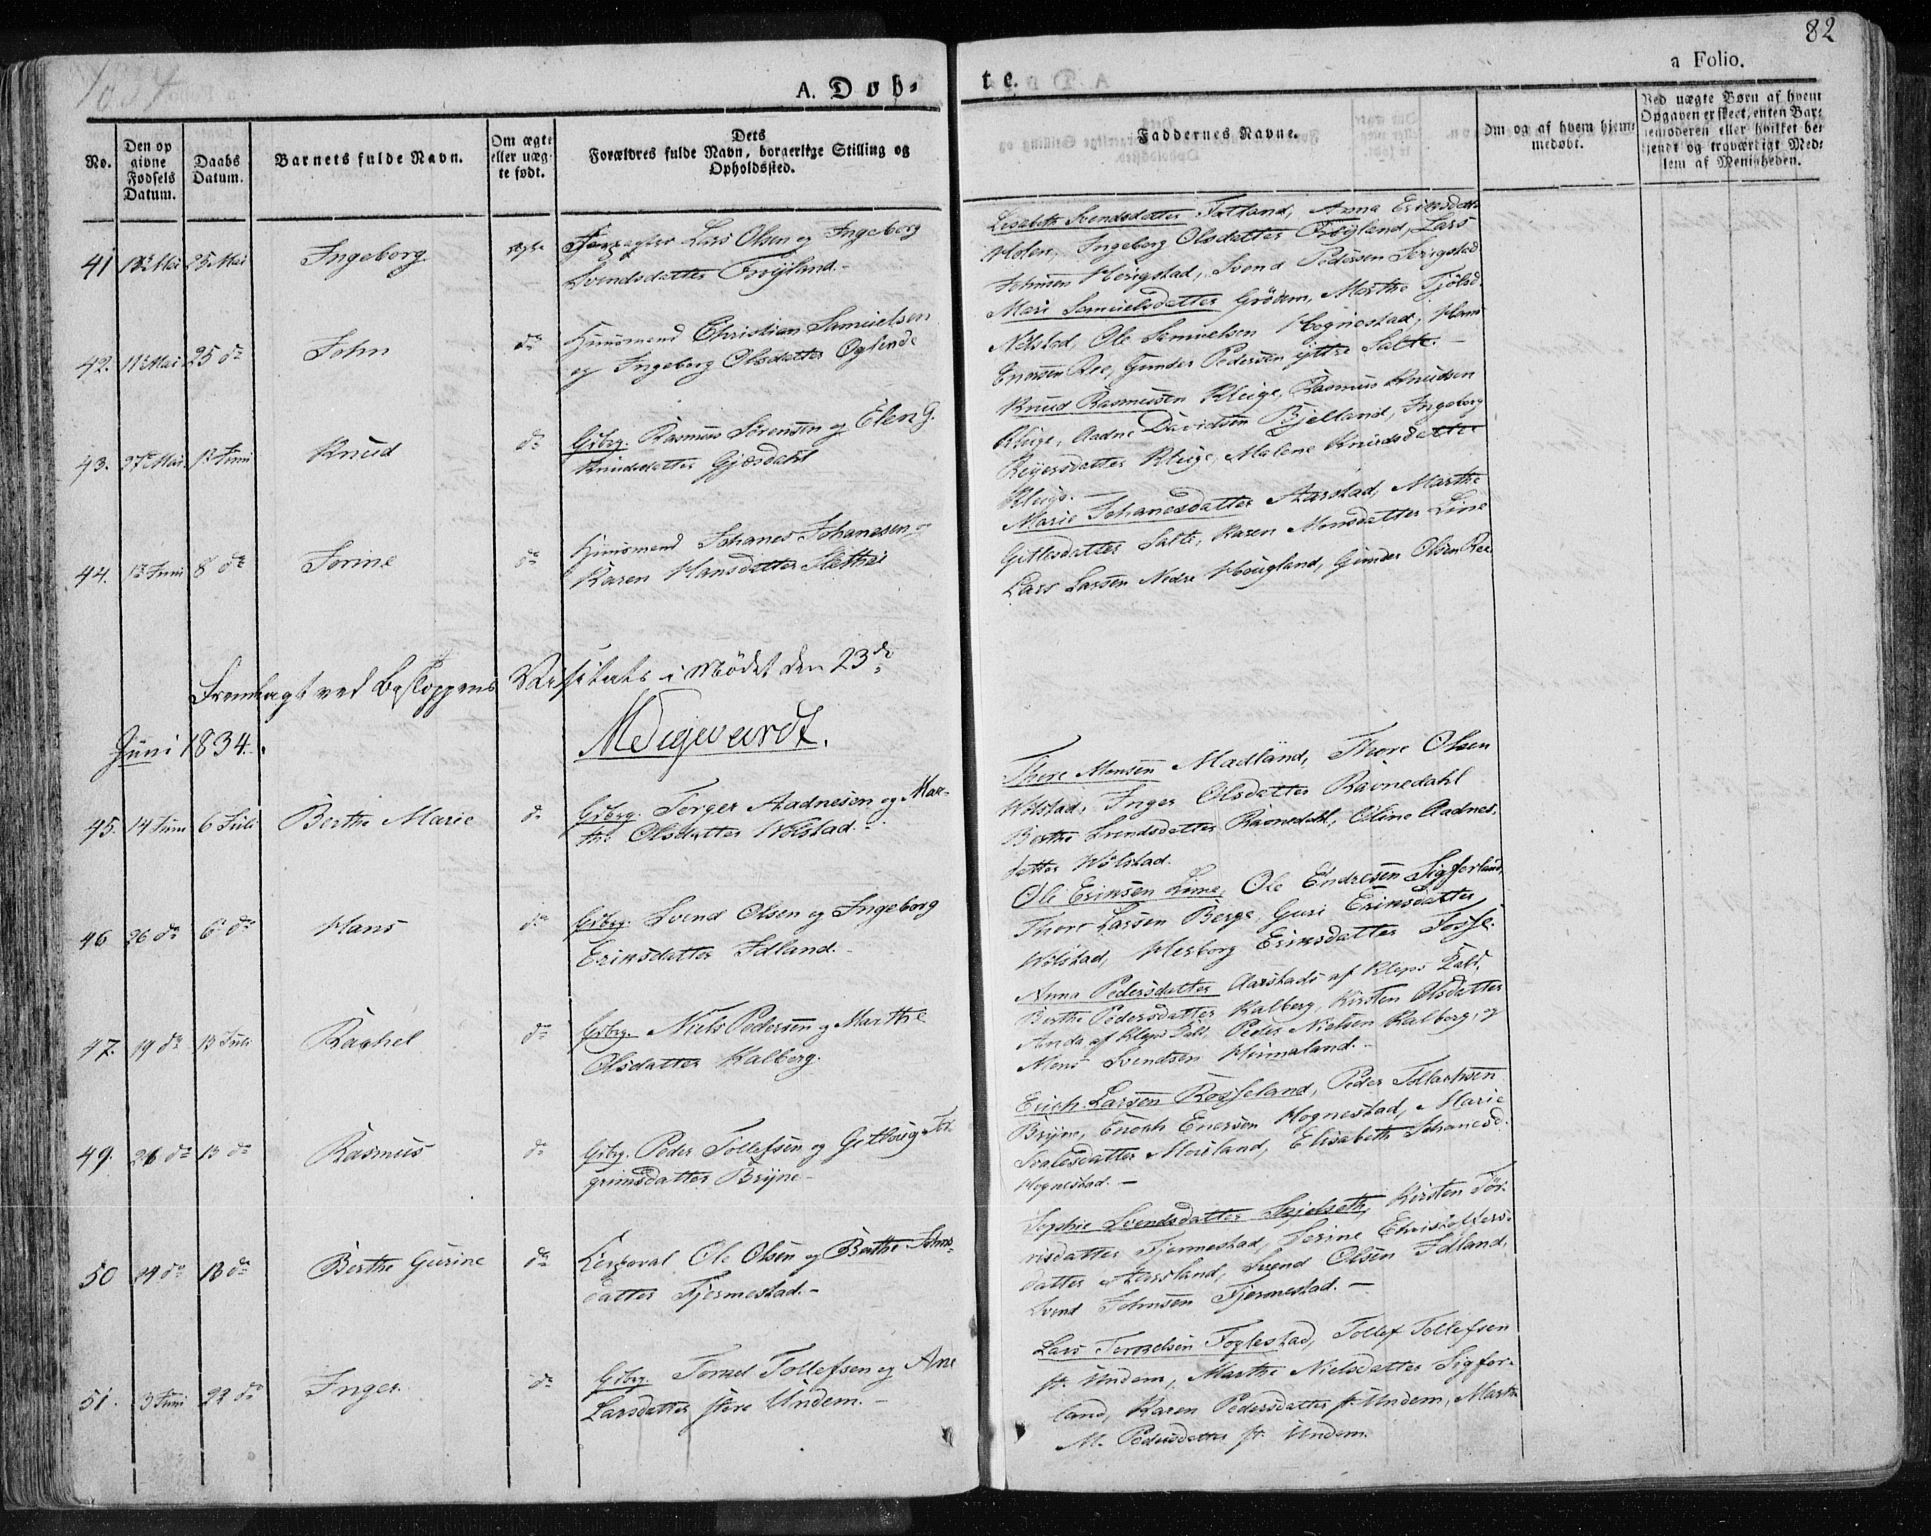 82
1834
A. Døb-
te.
a Folio.
No.
Den op
givne
Fødsels
Datum.
Daabs
Datum.
Barnets fulde Navn.
Om ægte
eller uæg-
te født.
Dets
Forældres fulde Navn, borgerlige Stilling og
Opholdssted.
Faddernes Navne.
Om og af hvem hjem-
medøbt.
Ved uægte Børn af hvem
Opgaven er skeet, enten Bar-
nemoderen eller hvilket be-
kjendt og troværdigt Med-
lem af Menigheden.
41 13 Mai 25 Mai Ingeborg ægte Lars Olsen og Ingeborg
Svendsdatter Frøyland.
Lisabeth Svendsdatter Tutland, Anna Eriksdatter
Holen, Ingeborg Olsdatter Frøyland, Lars
Johnsen Herigstad, Svend Pedersen Serigstad
42. 11 Mai 25 do John do Huusmand Christian Samuelsen
og Ingeborg Olsdatter Øglende
Mari Samuelsdatter Grødem, Marthe
Nølstad, Ole Samuelsen Hognestad, Hans
Enersen Ree, Gunder Pedersen yttre Salte.
43. 27 Mai 1 Juni Knud do Grbrg. Rasmus Sørensen og Elen G.
Knudsdatter Gjesdahl
Knud Rasmusen Kluge, Rasmus Knudsen
Kluge, Aadne Davidsen Bjelland, Ingeborg
Reyersdatter Kluge, Malene Knudsdatter
Kluge.
44. 1 Juni 8 do Sorine do Huusmand Johanes Johanesen og
Karen Hansdatter
Marie Johanesdatter Aarstad, Marthe
Gitlesdatter Salte, Karen Monsdatter Line
Lars Larsen Nedre Hougland, Gunder Olsen Ree
Fremlagt ved Biskoppens Visitats i Mødet den 23de
Juni 1834.
45. 14 Juni 6 Juli Berthe Marie do Grbrg. Torger Aadnesen og Mar-
the Olsdatter Wølstad.
Thore Monsen Madland, Thore Olsen
Wølstad, Inger Olsdatter Ravnedahl
Berthe Svendsdatter Ravnedahl, Oline Aadnes-
datter Wølstad.
46 26 do 6 do Hans do Grbrg. Svend Olsen og Ingeborg
Eriksdatter Idland.
Ole Eriksen Lime, Ole Endresen Sigferland,
Thore Larsen Berge, Guri Eriksdatter
Wølstad, Herborg Eriksdatter Fosse.
47. 19 do 13 Juli Rachel do Grbrg. Niels Pedersen og Marthe
Olsdatter Kalberg.
Anna Pedersdatter Aarstads af Kleps Kald,
Berthe Pedersdatter Kalberg, Kirsten Olsdatter
Anda af Kleps Kald, Peder Nielsen Kalberg, og
Mons Svendsen Hinnaland.
49. 21 do 13 do Rasmus do Grbrg. Peder Tollefsen og Gitlaug Tor-
grimsdatter Bryne
Erich Larsen Rosseland, Peder
Bryne, Enoch Enersen Hognestad, Marie
Svalesdatter Mosland, Elisabeth Johanesd.
Hognestad.
50 24 do 13 do Berthe Gurine do Ole Olsen og Berthe Johns-
datter Fjermestad.
Sophie Svendsdatter Skjelseth, Kirsten Tør-
risdatter Fjermestad, Serine Christoffers-
datter Aarsland, Svend Olsen Idland,
Svend Johnsen Fjermestad.
51. 3 Juni 22 do Inger do Grbrg. Torkel Tollefsen og Ane
Larsdatter støre Undem.
Lars Torkelsen Foglestad, Tollef Tollefsen
st. Undem, Marthe Nielsdatter Sigfer-
land, Karen Pedersdatter st. Undem, Marthe
M. Pedersdatter st. Undem.